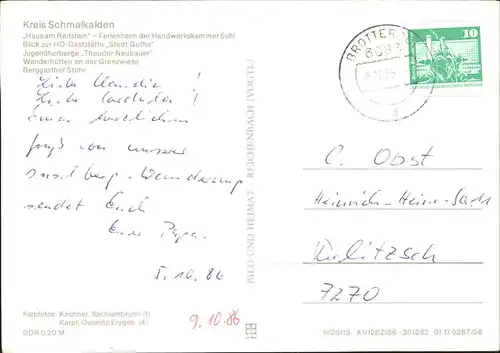 Kreis Schmalkalden
„Haus am Reitstein" – Ferienheim der Handwerkskammer Suhl
Blick zur HO-Gaststätte „Stadt Gotha"
Jugendherberge „Theodor Neubauer"
Wanderhütten an der Grenzwiese
Berggasthof Stöhr
Liebe Claudia!
Liebe
Einen herzlichen
Gruß von unserer
Inselberg-Wanderung
sendet Euch
Eure Papa.
5.10.86
9.10.86
Farbfotos: Kirchner, Sachsenbrunn (1)
Karpf, Oelsnitz/Erzgeb. (4)
DDR 0,20 M
BILD UND HEIMAT REICHENBACH (VOGTL)
BROTTER
10
C. Obst
Heinrich-Heine-Str. 11
Delitzsch
7270
A1/1282/86
01 11 0287/06